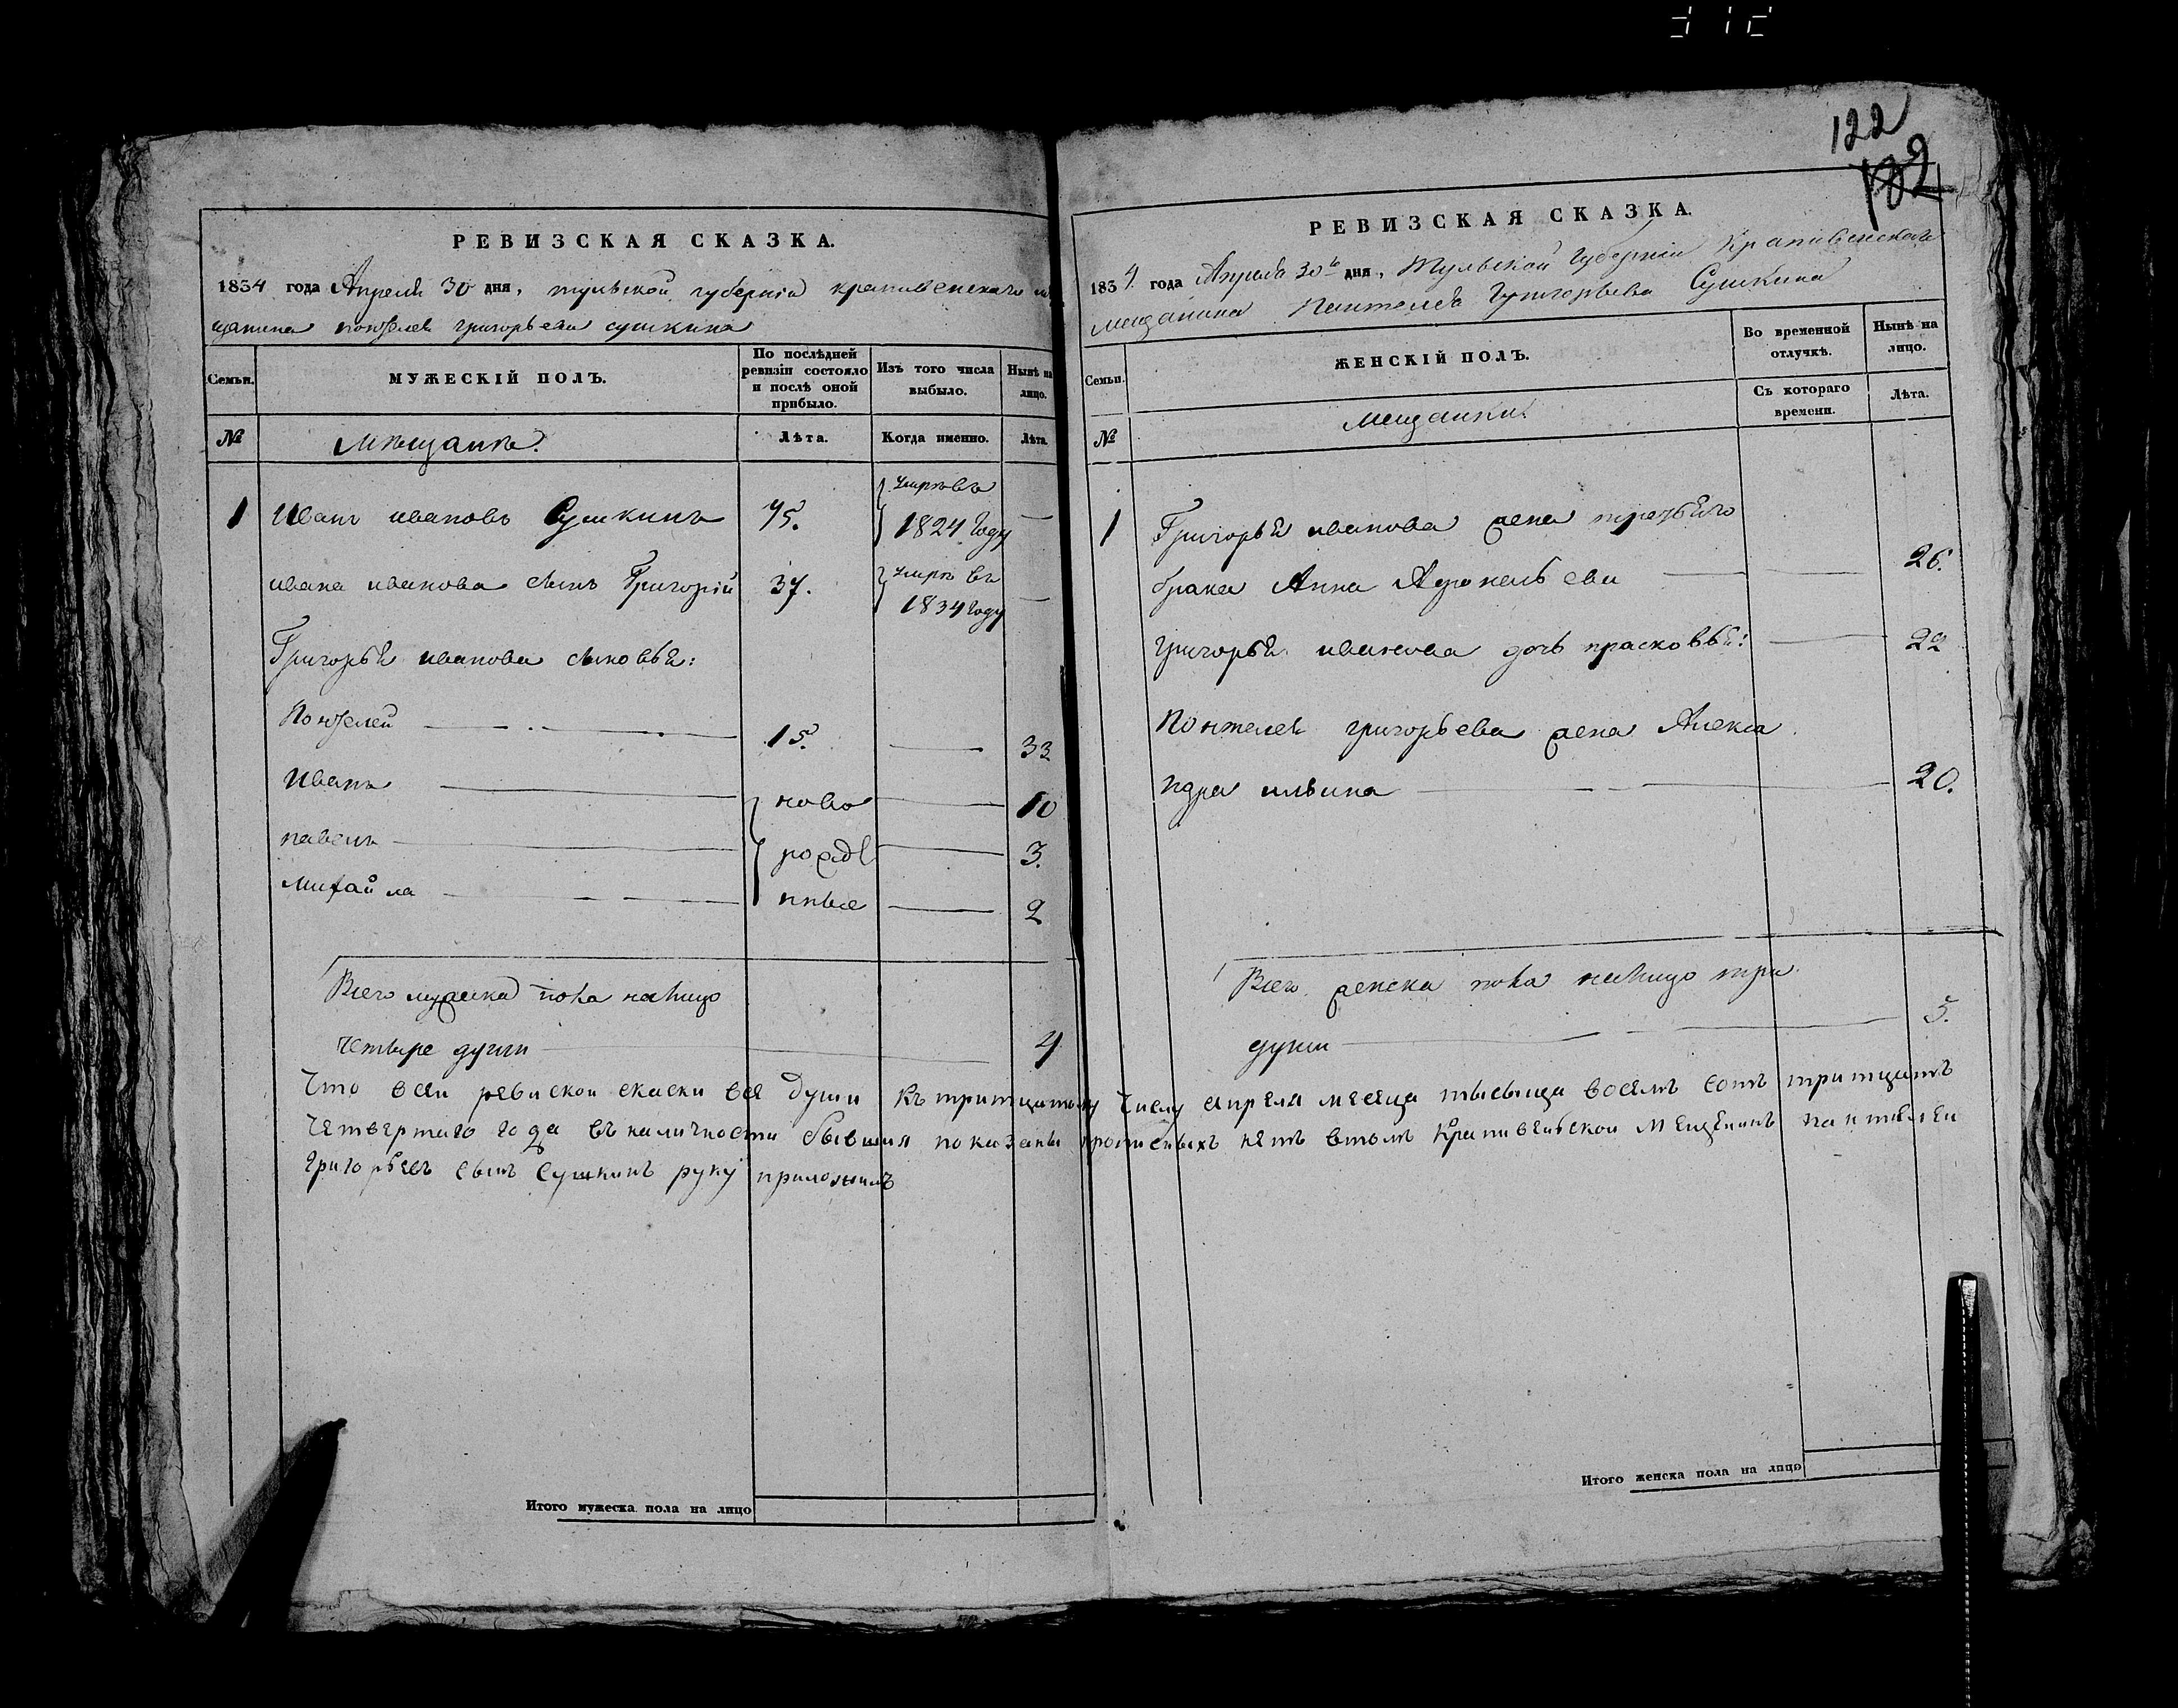 122
132
РЕВИЗСКАЯ СКАЗКА.
1834 года Апреля 30 дня, тульской губернiи крапивенскаго ме
щанина понтелея григорьева сушкина
Семьи.
МУЖЕСКIЙ ПОЛЪ.
По послѣдней ревизiи состояло и послѣ оной прибыло.
Изъ того числа выбыло.
Нынѣ на лицо.
№
Мѣщанѣ.
Лѣта.
Когда именно.
Лѣта.
1 Иванъ ивановъ Сушкинъ 75. умръ въ 1824 году —
ивана иванова сынъ Григорiй 37. умръ въ 1834 году —
Григорья иванова сыновья:
Понтелей — 15. — 33
Иванъ — ново — 10
павелъ — рожде — 3.
михайла — нные — 2
Всего мужска пола налицо
четыре души — 4
РЕВИЗСКАЯ СКАЗКА.
1834 года Апреля 30го дня, Тульской Губернiи Крапивенскаго
мещанина Пантелея Григорьева Сушкина
Семьи.
ЖЕНСКIЙ ПОЛЪ.
Во временной отлучкѣ.
Нынѣ на лицо.
№
мещанки.
Съ котораго времени.
Лѣта.
1 Григорья иванова жена третьяго
брака Анна — — 26.
григорья иванова дочь прасковья: — 22
Понтелея григорьева жена Алекса
ндра ильина — 20.
Всего женска пола налицо три
души — 3.
Что всей ревиской скаски все души къ тритцатому числу апреля месеца тысьяща восемъ сотъ тритцать
четвертаго года въ наличности бывшия показаны прописныхъ нетъ втомъ крапивенской мещенинъ пантелей
григорьевъ сынъ сушкинъ руку приложилъ
Итого мужеска пола на лицо
Итого женска пола на лицо